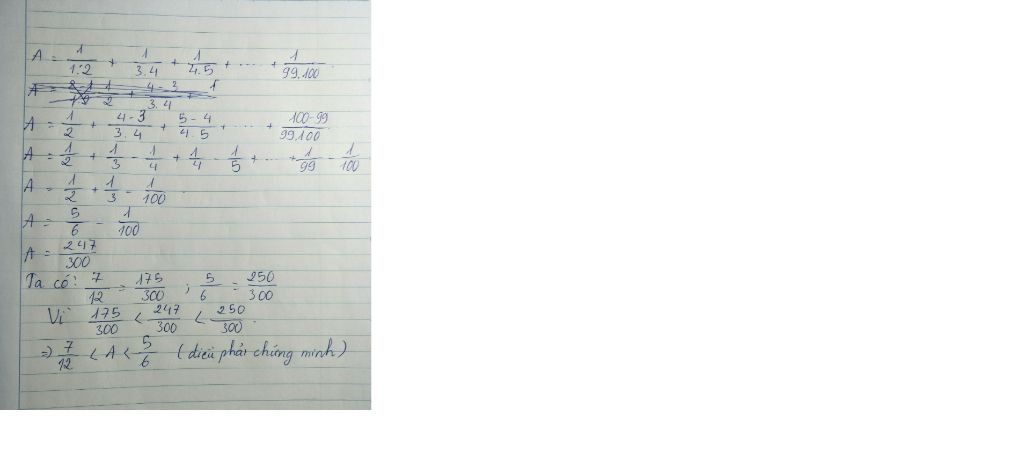 A = 1/1.2 + 1/3.4 + 1/4.5 + ..... + 1/99.100
A = 1/2 + 4-3/3.4 + 5-4/4.5 + ..... + 100-99/99.100
A = 1/2 + 1/3 - 1/4 + 1/4 - 1/5 + .... + 1/99 - 1/100
A = 1/2 + 1/3 - 1/100
A = 5/6 - 1/100
A = 247/300
Ta có: 7/12 = 175/300 ; 5/6 = 250/300
Vì 175/300 < 247/300 < 250/300.
=> 7/12 < A < 5/6 (điều phải chứng minh)